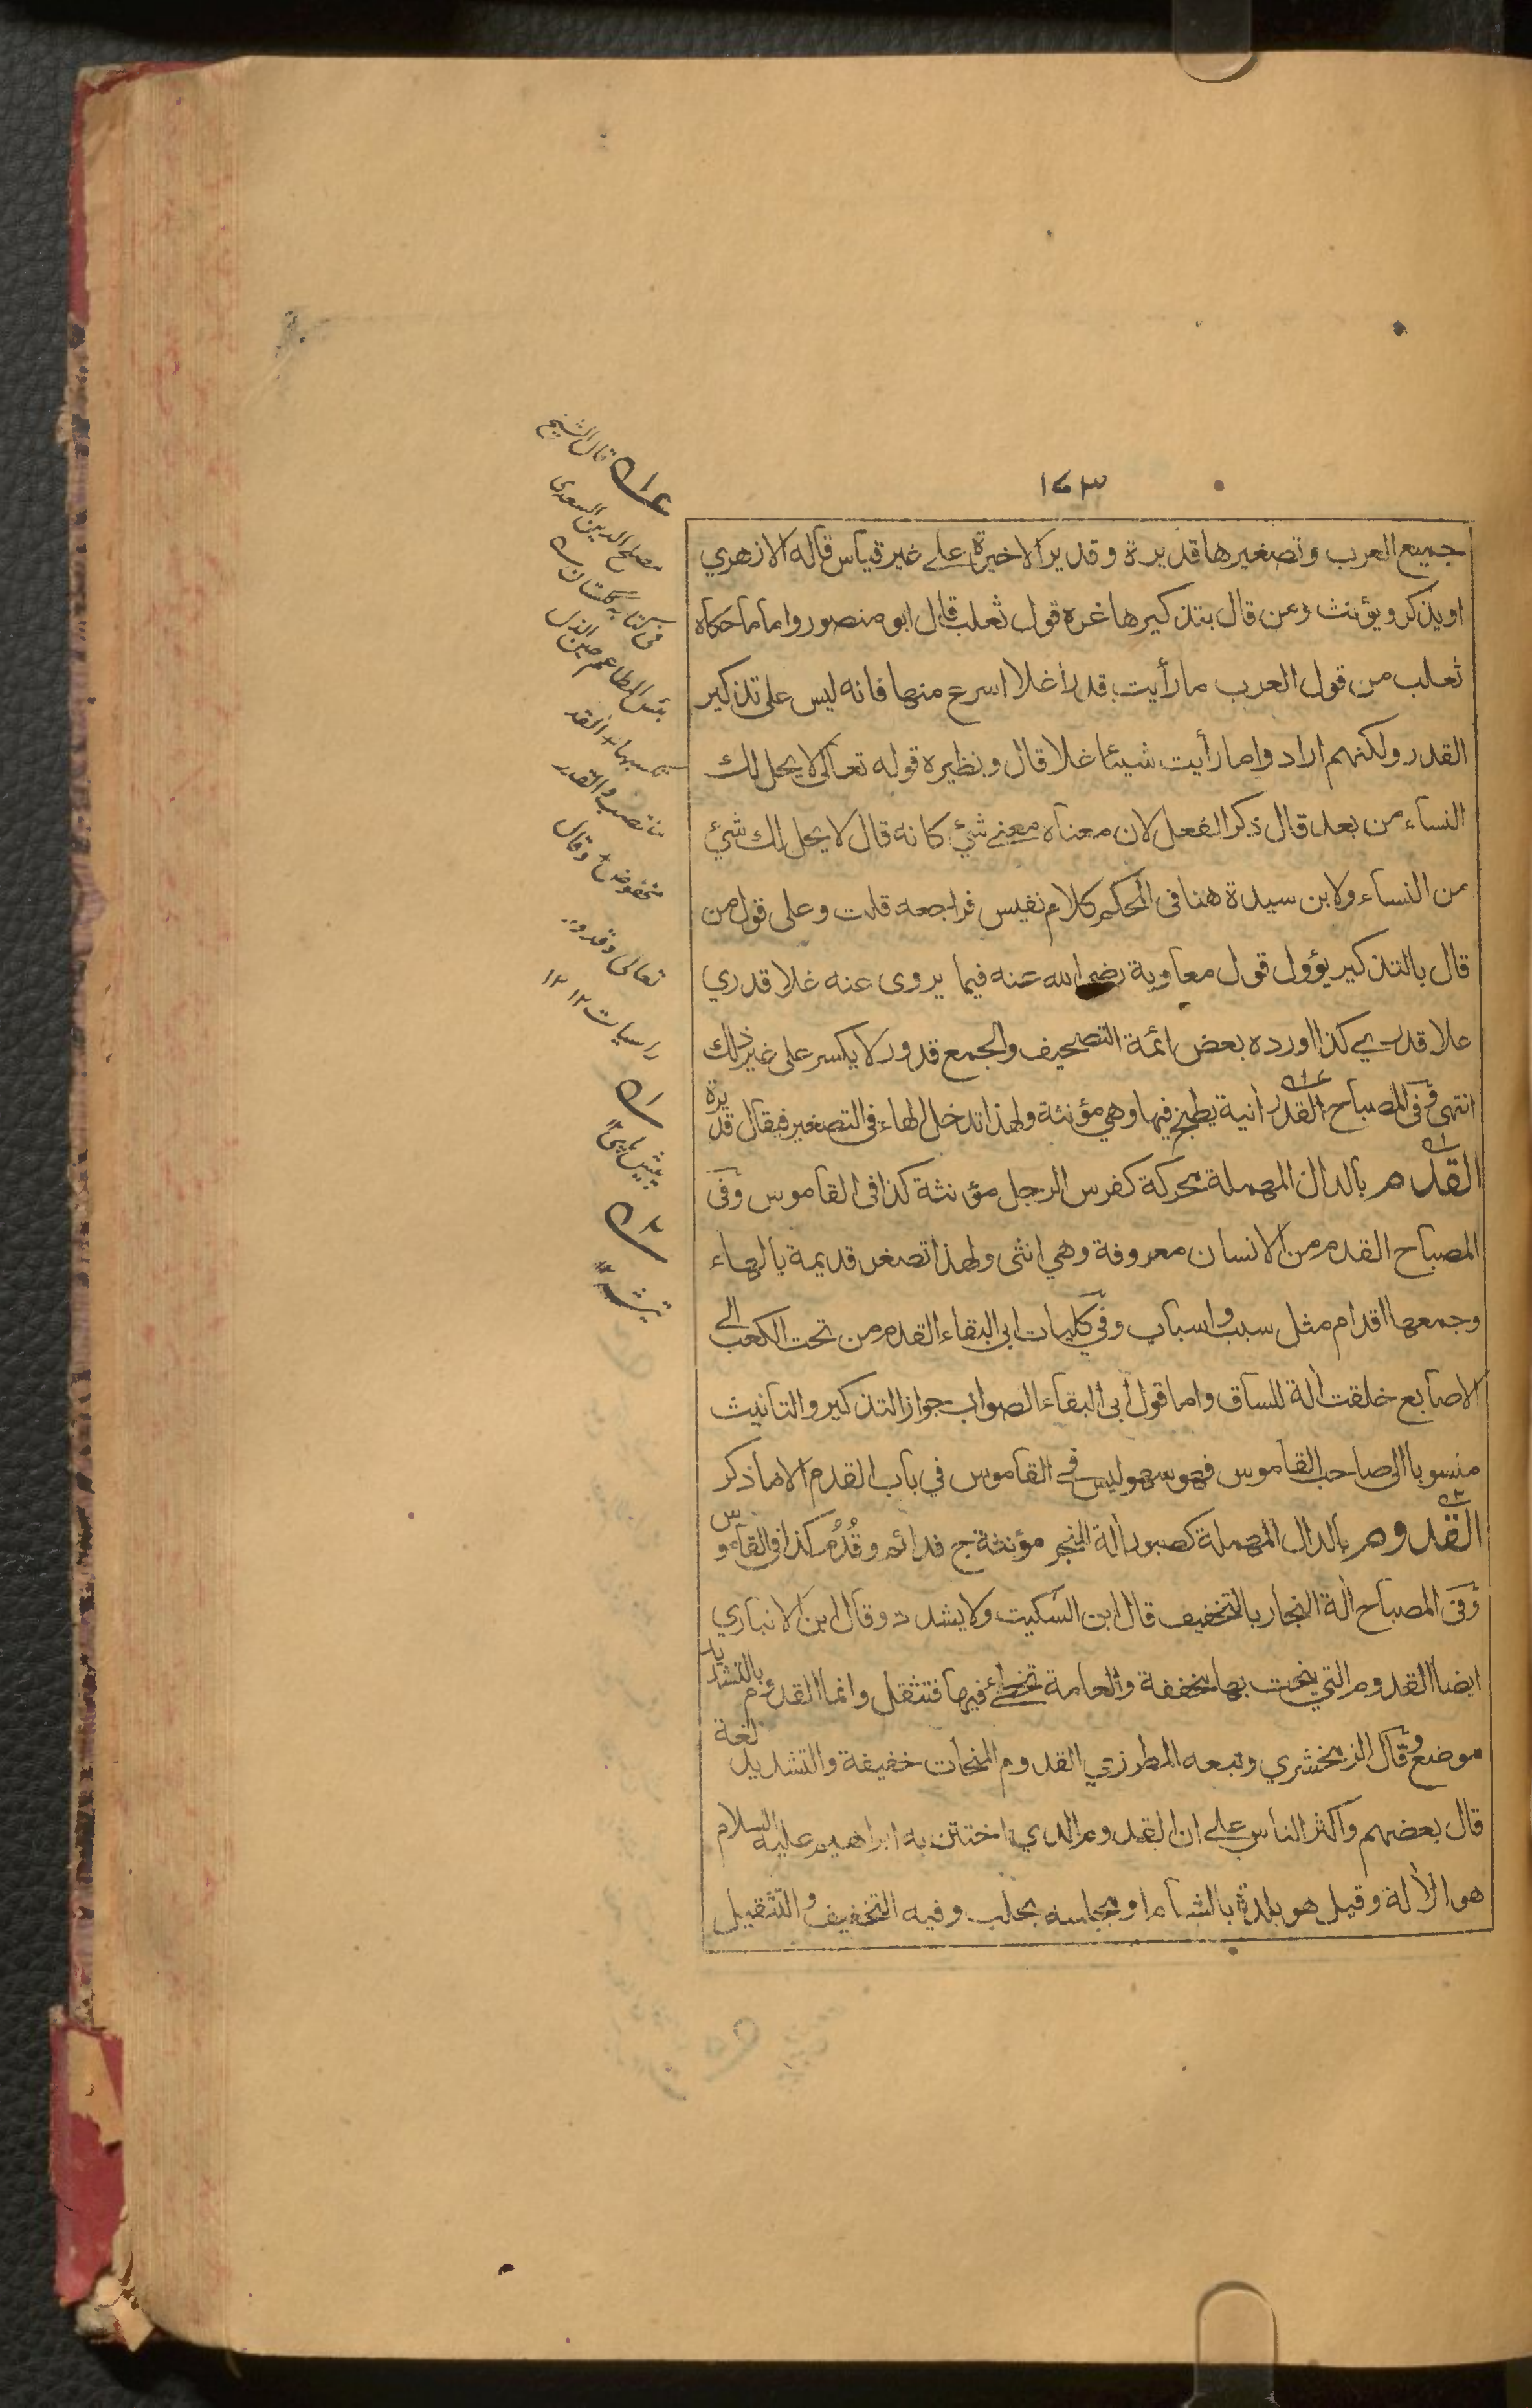 ١٧٣
جميع العرب وتصغيرها قديرة وقدير الاخيرة على غير قياس قاله الازهري
او يذكر ويؤنث ومن قال بتذكيرها غره قول ثعلب قال ابو منصور واما ما حكاه
ثعلب من قول العرب ما رأيت قدرا غلا اسرع منها فانه ليس على تذكير
القدر ولكنهم ارادوا ما رأيت شيئا غلا قال ونظيره قوله تعالى لا يحل لك
النساء من بعد قال ذكر الفعل لان معناه معنى شئ كانه قال لا يحل لك شئ
من النساء ولابن سيدة هنا فى المحكم كلام نفيس فراجعه قلت وعلى قول من
قال بالتذكير يؤول قول معاوية رضي الله عنه فيما يروى عنه غلا قدري
علا قدري كذا اورده بعض ائمة التصحيف والجمع قدور لا يكسر على غير ذلك
انتهى وفى المصباح القدر انية يطبخ فيها وهي مؤنثة ولهذا تدخل الهاء فى التصغير فيقال قديرة
القدم بالدال المهملة محركة كفرس الرجل مؤنثة كذا فى القاموس وفى
المصباح القدم من الانسان معروفة وهي انثى ولهذا تصغر قديمة بالهاء
وجمعها اقدام مثل سبب واسباب وفي كليات ابي البقاء القدم من تحت الكعب الى
الاصابع خلقت الة للساق واما قول ابي البقاء الصواب جواز التذكير والتانيث
منسوبا الى صاحب القاموس فهو سهو ليس في القاموس في باب القدم الا ما ذكر
القدوم بالدال المهملة كصبور الة للنجر مؤنثة ج قدائم وقُدُم كذا فى القاموس
وفى المصباح الة النجار بالتخفيف قال ابن السكيت ولا يشدد وقال ابن الانباري
ايضا القدوم التي ينحت بها مخففة والعامة تخطئ فيها فتثقل وانما القدوم بالتشديد
موضع وقال الزمخشري وتبعه المطرزي القدوم المنحات خفيفة والتشديد لغة
قال بعضهم واكثر الناس على ان القدوم الذي اختتن به ابراهيم عليه السلام
هو الألة وقيل هو بلدة بالشام او مجلسه بحلب وفيه التخفيف والتثقيل
قال الشيخ
مصلح الدين السعدى
فى كتابه گلستان
بئس المطاعم حين الذل
يكسبها القدر
منتصب والقدر
مخفوض وقال
تعالى وقدور
راسيات ١٢